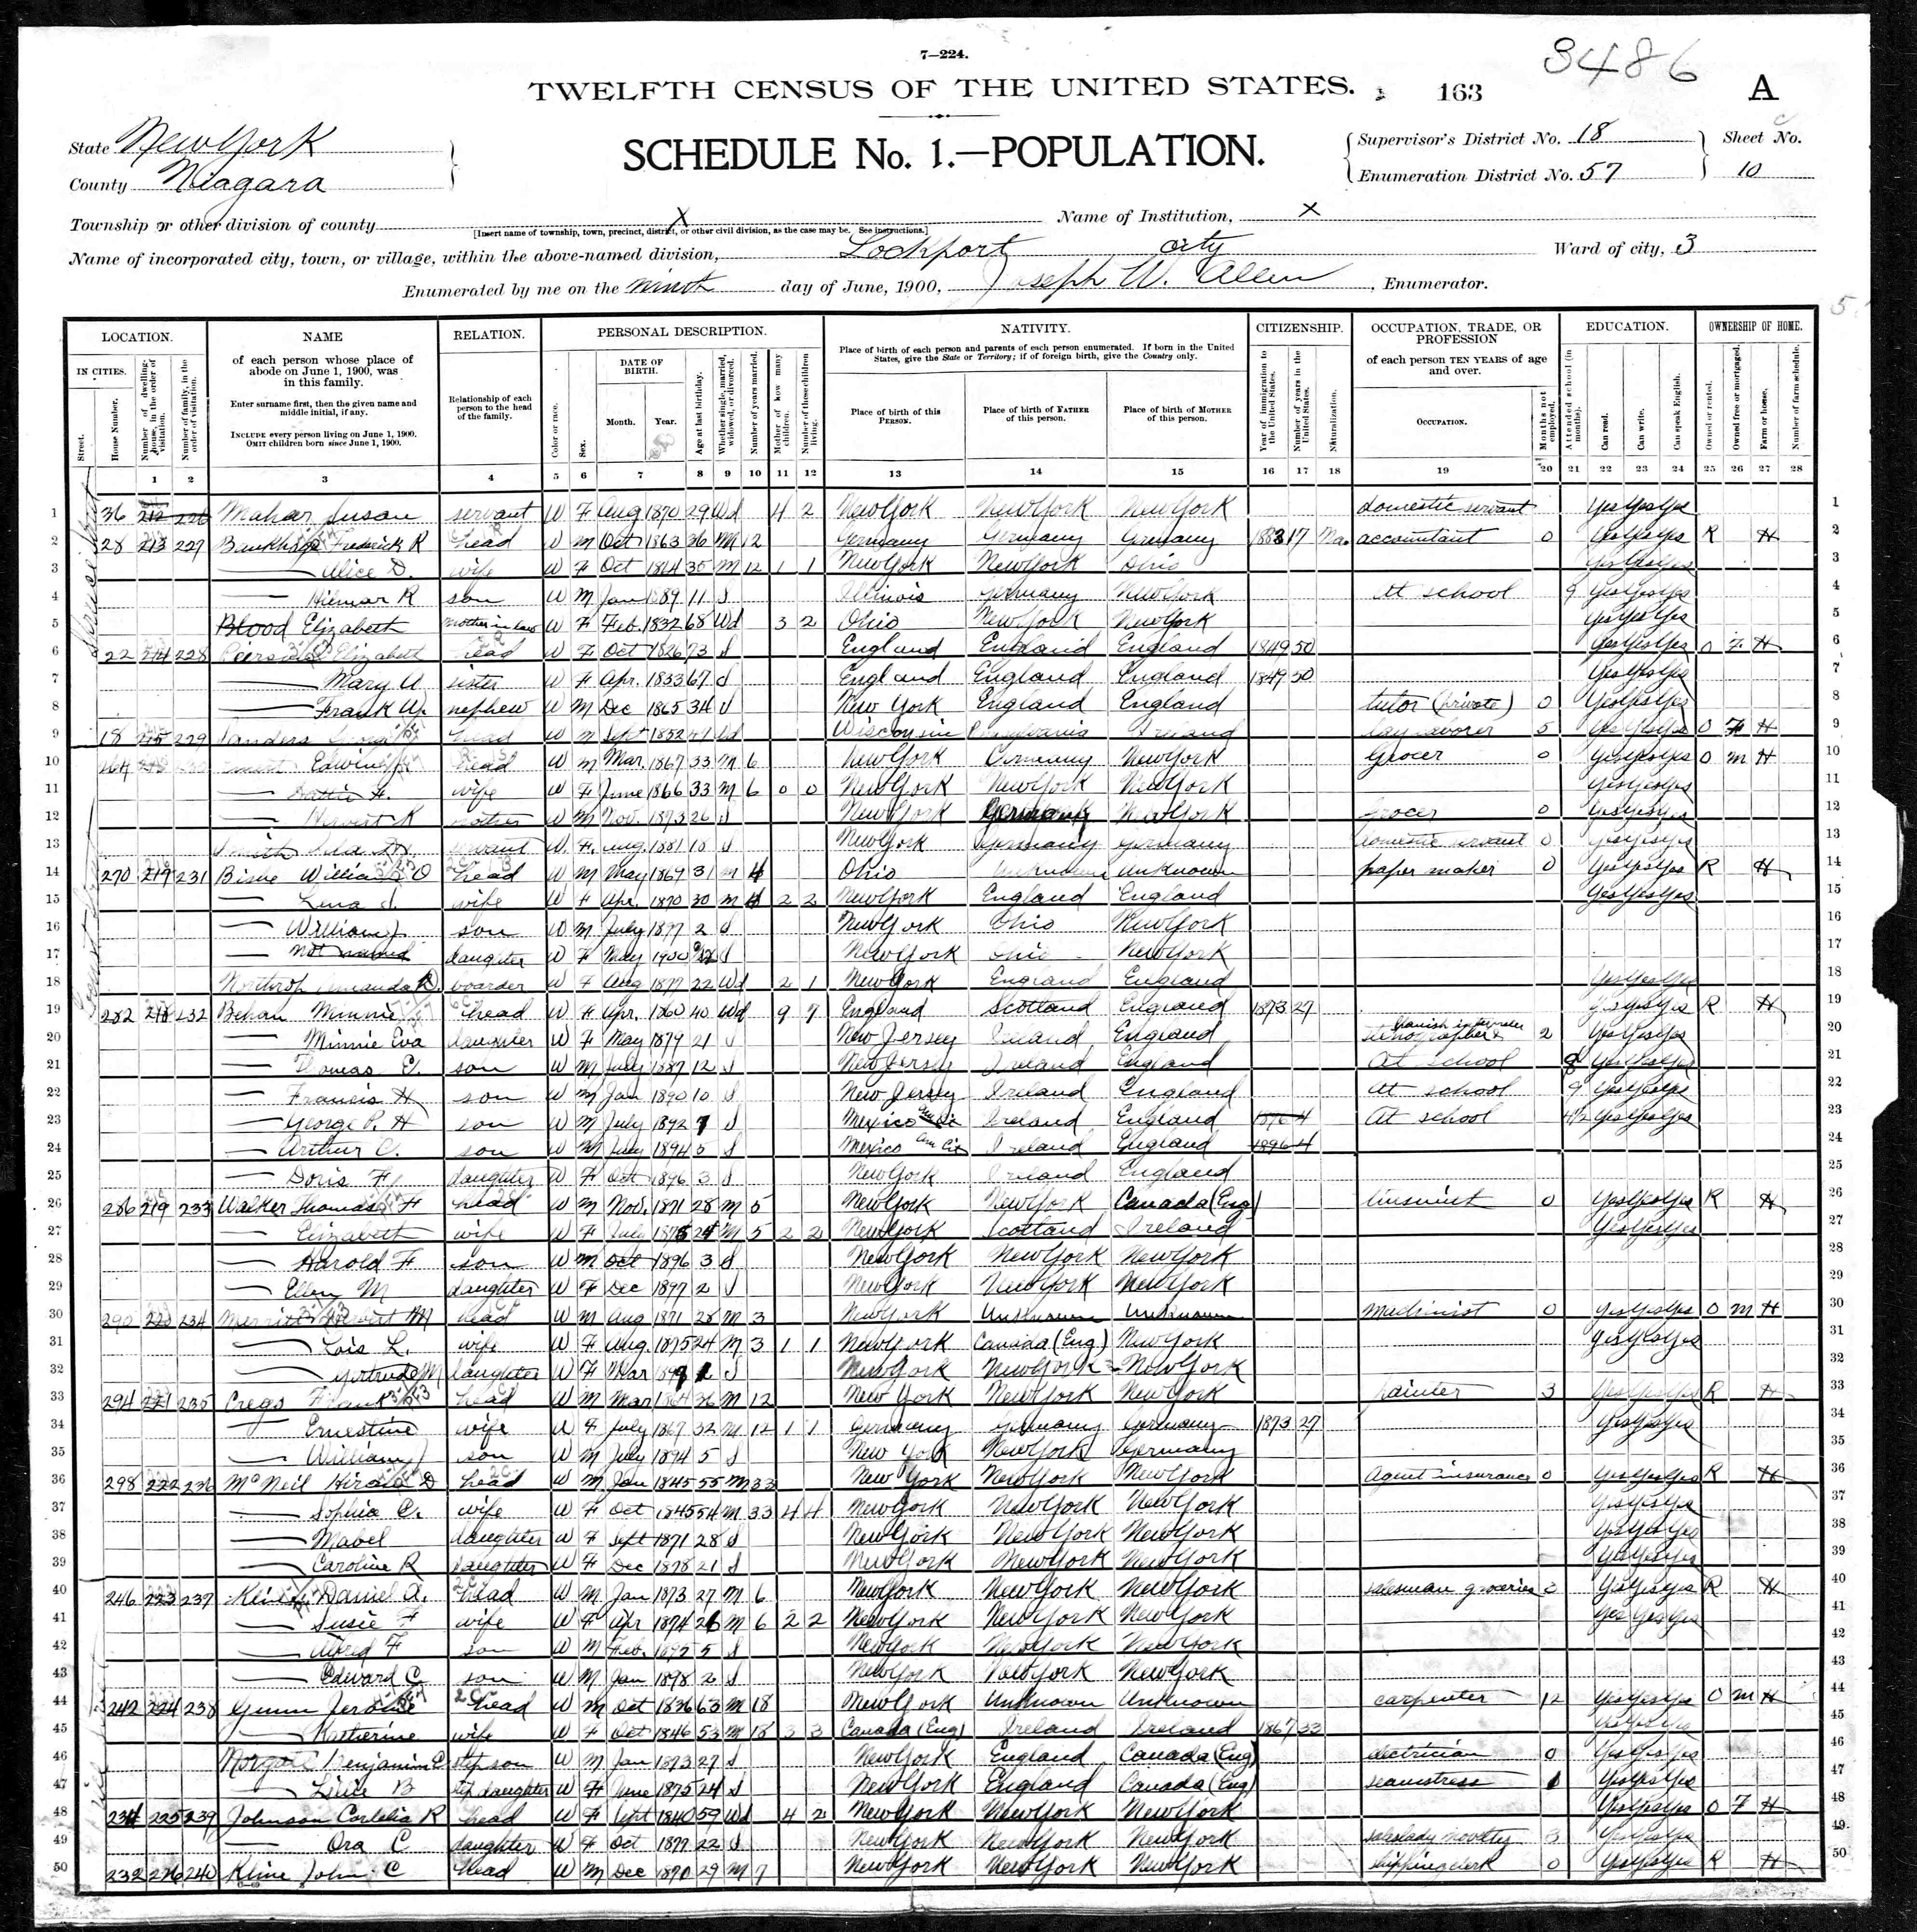 7—224.
3486
TWELFTH CENSUS OF THE UNITED STATES.
163
A
State New York
County Niagara
SCHEDULE No. 1.—POPULATION.
Supervisor's District No. 18
Enumeration District No. 57
Sheet No.
10
Township or other division of county X
[Insert name of township, town, precinct, district, or other civil division, as the case may be. See instructions.]
Name of Institution, X
Name of incorporated city, town, or village, within the above-named division, Lockport city
Ward of city, 3
Enumerated by me on the ninth day of June, 1900, Joseph W. Allen, Enumerator.
LOCATION. NAME RELATION. PERSONAL DESCRIPTION. NATIVITY. CITIZENSHIP. OCCUPATION, TRADE, OR PROFESSION EDUCATION. OWNERSHIP OF HOME.
IN CITIES.
Street.
House Number.
Number of dwelling-house, in the order of visitation.
Number of family, in the order of visitation.
of each person whose place of abode on June 1, 1900, was in this family.
Enter surname first, then the given name and middle initial, if any.
INCLUDE every person living on June 1, 1900.
OMIT children born since June 1, 1900.
Relationship of each person to the head of the family.
Color or race.
Sex.
DATE OF BIRTH.
Month. Year.
Age at last birthday.
Whether single, married, widowed, or divorced.
Number of years married.
Mother of how many children.
Number of these children living.
Place of birth of each person and parents of each person enumerated. If born in the United States, give the State or Territory; if of foreign birth, give the Country only.
Place of birth of this PERSON.
Place of birth of FATHER of this person.
Place of birth of MOTHER of this person.
Year of immigration to the United States.
Number of years in the United States.
Naturalization.
of each person TEN YEARS of age and over.
OCCUPATION.
Months not employed.
Attended school (in months).
Can read.
Can write.
Can speak English.
Owned or rented.
Owned free or mortgaged.
Farm or house.
Number of farm schedule.
1 2 3 4 5 6 7 8 9 10 11 12 13 14 15 16 17 18 19 20 21 22 23 24 25 26 27 28
1 36 212 226 Mahar Susan servant W F Aug 1870 29 Wd 4 2 New York New York New York domestic servant Yes Yes Yes 1
2 28 213 227 Frederick R head W M Oct 1863 36 M 12 Germany Germany Germany 1883 17 Na. accountant 0 Yes Yes Yes R H 2
3 — Alice D. wife W F Oct 35 M 12 1 1 New York New York Ohio Yes Yes Yes 3
4 — Hilmar R son W M Jan 1889 11 S Illinois Germany New York At school 9 Yes Yes Yes 4
5 Blood Elizabeth mother in law W F Feb. 1832 68 Wd 3 2 Ohio New York New York Yes Yes Yes 5
6 22 214 228 Elizabeth head W F Oct 1826 73 S England England England 1849 50 Yes Yes Yes O F H 6
7 — Mary A sister W F Apr. 1833 67 S England England England 1849 50 Yes Yes Yes 7
8 — Frank W. nephew W M Dec 1865 34 S New York England England tutor (private) 0 Yes Yes Yes 8
9 18 215 229 Sanders George head W M Sept 1852 47 Wd Wisconsin Pennsylvania Ireland day laborer 5 Yes Yes Yes O F H 9
10 264 Edwin head W M Mar. 1867 33 M 6 New York Germany New York Grocer 0 Yes Yes Yes O M H 10
11 — Hattie H. wife W F June 1866 33 M 6 0 0 New York New York New York Yes Yes Yes 11
12 — K W M Nov. 1873 26 S New York Germany New York Grocer 0 Yes Yes Yes 12
13 Smith servant W F Aug. 1881 18 S New York Germany Germany domestic servant 0 Yes Yes Yes 13
14 270 217 231 William O head W M May 1869 31 M 4 Ohio Unknown Unknown paper maker 0 Yes Yes Yes R H 14
15 — Lena wife W F Apr. 1870 30 M 4 2 2 New York England England Yes Yes Yes 15
16 — William J. son W M July 1897 2 S New York Ohio New York 16
17 — Not named daughter W F May 1900 S New York Ohio New York 17
18 Northrop Amanda boarder W F Aug 1877 22 Wd 2 1 New York England England Yes Yes Yes 18
19 282 218 232 Behan Minnie head W F Apr. 1860 40 Wd 9 7 England Scotland England 1873 27 Yes Yes Yes R H 19
20 — Minnie Eva daughter W F May 1879 21 S New Jersey Ireland England Spanish interpreter stenographer & 2 Yes Yes Yes 20
21 — Thomas son W M July 1887 12 S New Jersey Ireland England At school 8 Yes Yes Yes 21
22 — Francis H son W M Jan 1890 10 S New Jersey Ireland England At school 9 Yes Yes Yes 22
23 — George P. H son W M July 1892 7 S Mexico Am Cit Ireland England 1896 4 At school 4½ Yes Yes Yes 23
24 — Arthur C. son W M July 1894 5 S Mexico Am Cit Ireland England 1896 4 24
25 — Doris F. daughter W F Oct 1896 3 S New York Ireland England 25
26 286 219 233 Walker Thomas H head W M Nov. 1871 28 M 5 New York New York Canada (Eng) tinsmith 0 Yes Yes Yes R H 26
27 — Elizabeth wife W F July 1875 24 M 5 2 2 New York Scotland Ireland Yes Yes Yes 27
28 — Harold F son W M Oct 1896 3 S New York New York New York 28
29 — Ellen M daughter W F Dec 1897 2 S New York New York New York 29
30 290 220 234 Merritt M head W M Aug 1871 28 M 3 New York Unknown Unknown Machinist 0 Yes Yes Yes O M H 30
31 — Lois L. wife W F Aug. 1875 24 M 3 1 1 New York Canada (Eng) New York Yes Yes Yes 31
32 — Gertrude M daughter W F Mar 1899 1 S New York New York New York 32
33 294 221 235 Crego Frank head W M Mar 1864 36 M 12 New York New York New York painter 3 Yes Yes Yes R H 33
34 — Ernestine wife W F July 1867 32 M 12 1 1 Germany Germany Germany 1873 27 Yes Yes Yes 34
35 — William J son W M July 1894 5 S New York New York Germany 35
36 298 222 236 McNeil Hiram D head W M Jan 1845 55 M 33 New York New York New York Agent insurance 0 Yes Yes Yes R H 36
37 — Sophia C. wife W F Oct 1845 54 M 33 4 4 New York New York New York Yes Yes Yes 37
38 — Mabel daughter W F Sept 1871 28 S New York New York New York Yes Yes Yes 38
39 — Caroline R daughter W F Dec 1878 21 S New York New York New York Yes Yes Yes 39
40 246 223 237 Kline Daniel A. head W M Jan 1873 27 M 6 New York New York New York salesman groceries Yes Yes Yes R H 40
41 — Susie F wife W F Apr 1874 26 M 6 2 2 New York New York New York Yes Yes Yes 41
42 — Alfred F son W M Feb. 1895 5 S New York New York New York 42
43 — Edward C son W M Jan 1898 2 S New York New York New York 43
44 242 224 238 Gunn Jerome head W M Oct 1836 63 M 18 New York Unknown Unknown carpenter 12 Yes Yes Yes O M H 44
45 — Katherine wife W F Oct 1846 53 M 18 3 3 Canada (Eng) Ireland Ireland 1867 33 Yes Yes Yes 45
46 Benjamin C step son W M Jan 1873 27 S New York England Canada (Eng) electrician 0 Yes Yes Yes 46
47 — B step daughter W F June 1875 24 S New York England Canada (Eng) seamstress Yes Yes Yes 47
48 234 225 239 Johnson Cordelia R head W F Sept 1840 59 Wd 4 2 New York New York New York Yes Yes Yes O F H 48
49 — Ora C daughter W F Oct 1877 22 S New York New York New York saleslady novelty 3 Yes Yes Yes 49
50 232 226 240 Kline John C head W M Dec 1870 29 M 7 New York New York New York shipping clerk 0 Yes Yes Yes R H 50